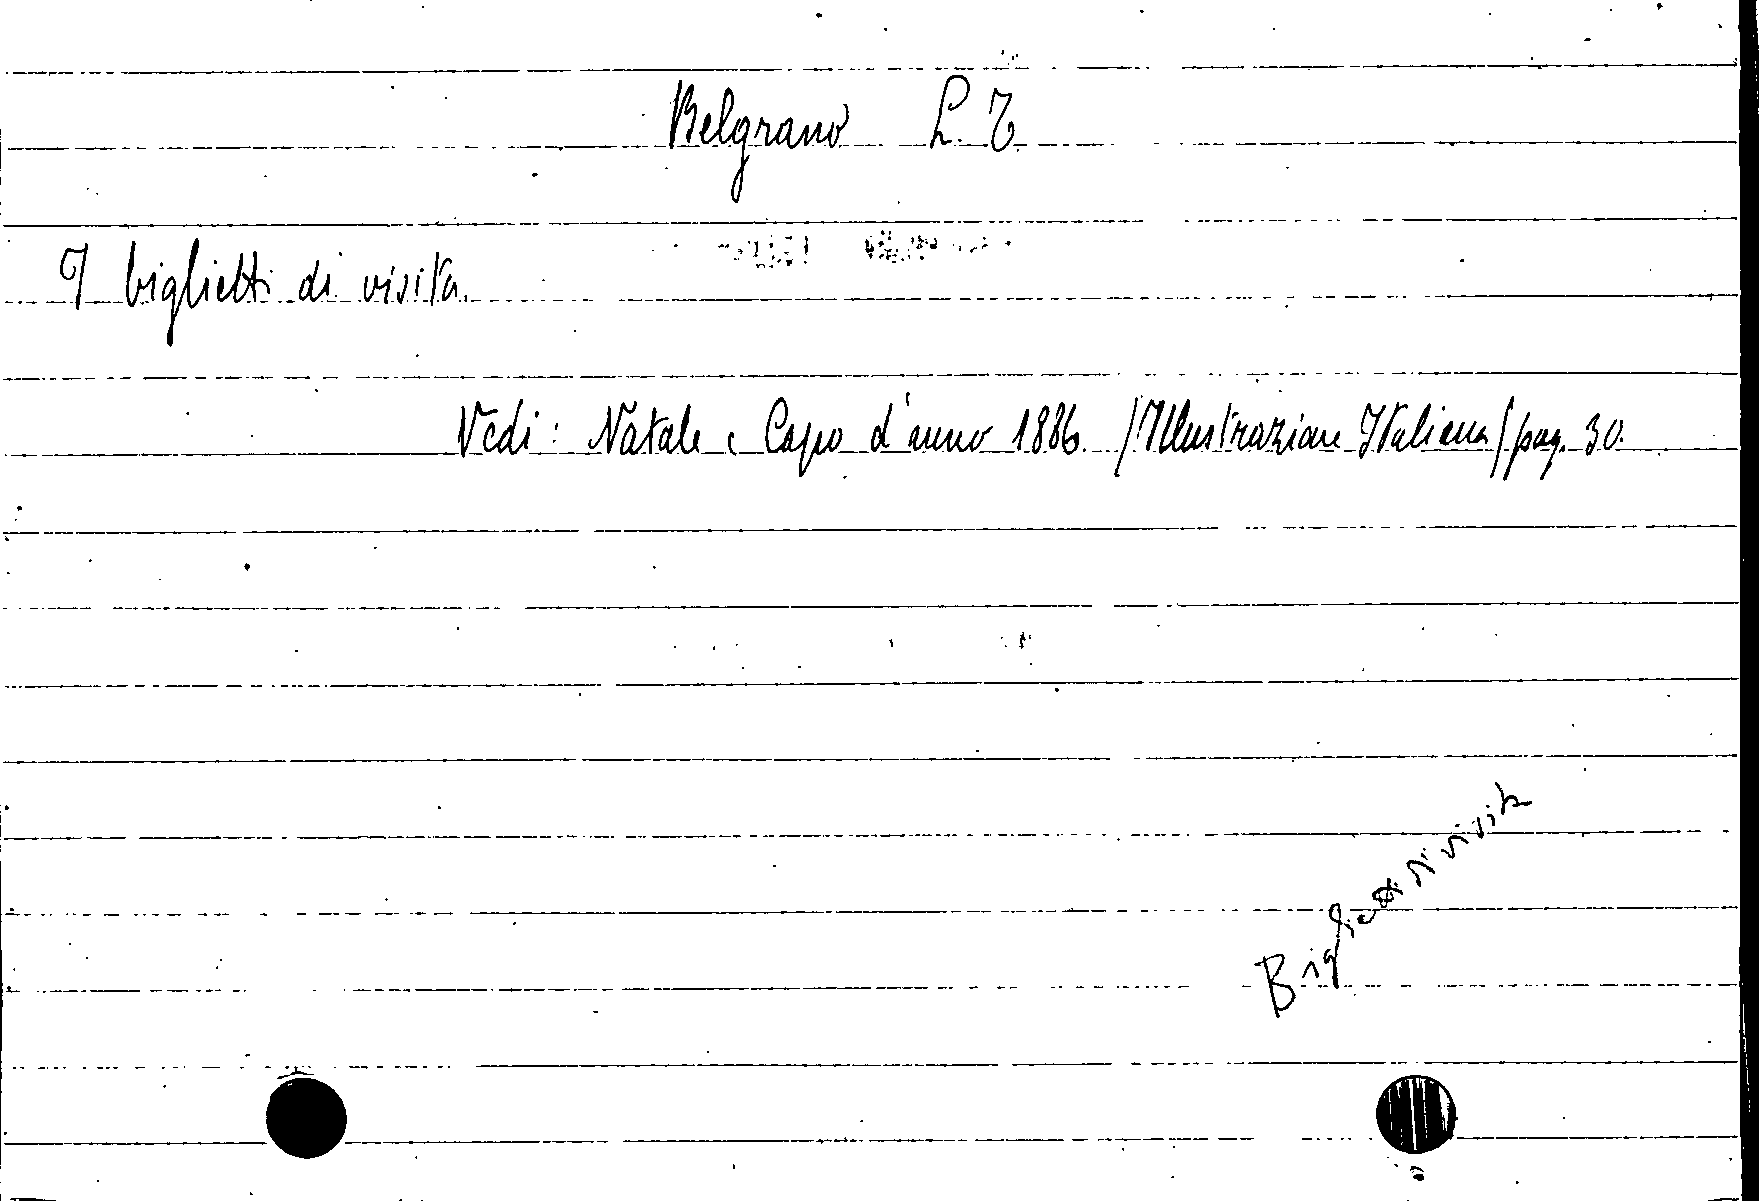 Belgrano L. T.
I biglietti di visita.
Vedi: Natale e Capo d'anno 1886. (Illustrazione Italiana) pag. 30.
Biglietti di visita